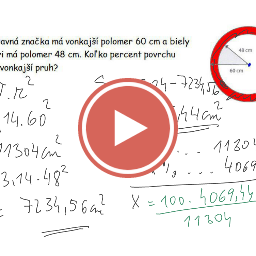 avná značka má vonkajší polomer 60 cm a biely
i má polomer 48 cm. Koľko percent povrchu
vonkajší pruh?
48 cm
60 cm
.r²
14.60²
11304 cm²
3,14.48²
= 7234,56 cm²
04-7234,56
,44 cm²
... 11304
% ... 4069,
X = 100. 4069,44
11304